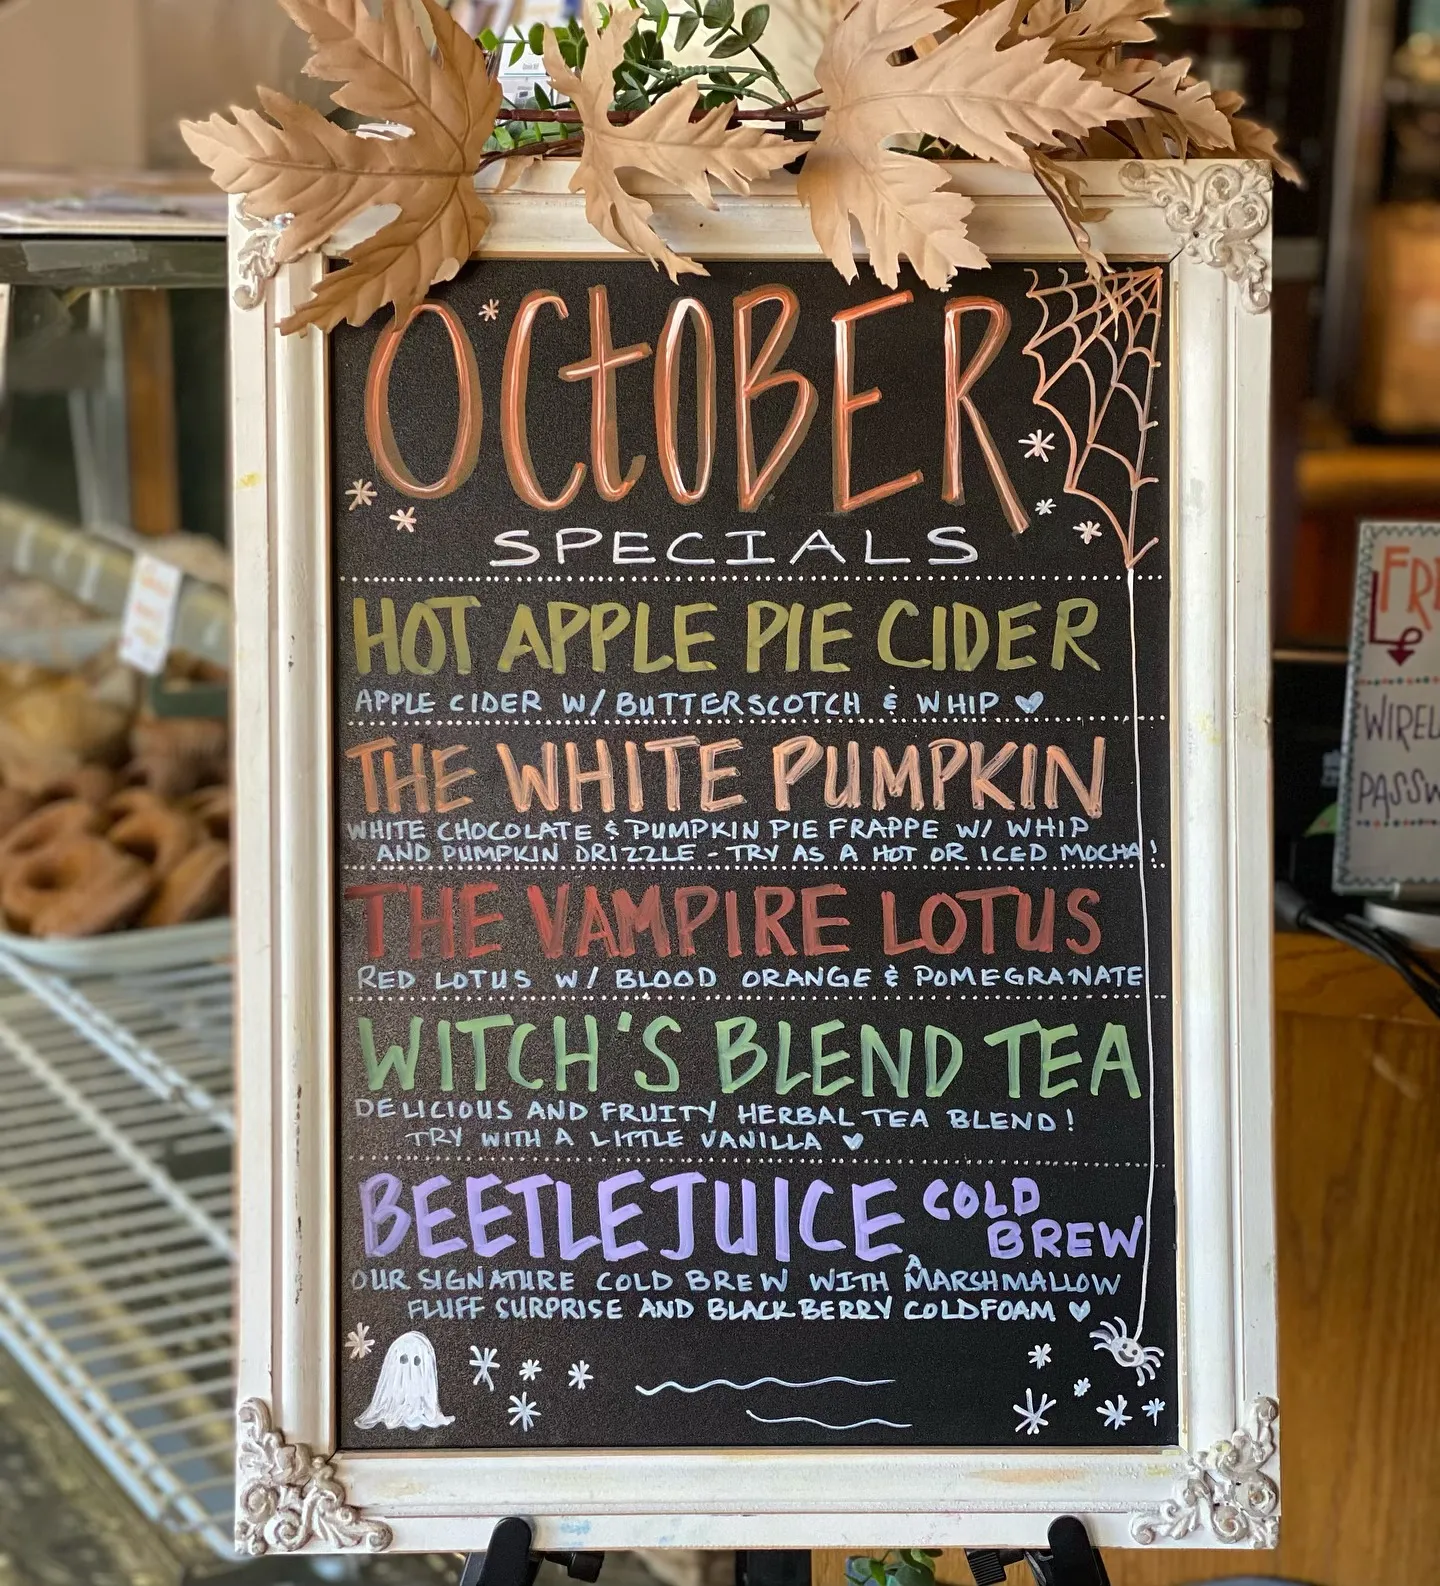 OCtOBER
SPECIALS
HOT APPLE PIE CIDER
APPLE CIDER W/ BUTTERSCOTCH & WHIP ♥
THE WHITE PUMPKIN
WHITE CHOCOLATE & PUMPKIN PIE FRAPPE W/ WHIP
AND PUMPKIN DRIZZLE - TRY AS A HOT OR ICED MOCHA!
THE VAMPIRE LOTUS
RED LOTUS W/ BLOOD ORANGE & POMEGRANATE
WITCH'S BLEND TEA
DELICIOUS AND FRUITY HERBAL TEA BLEND!
TRY WITH A LITTLE VANILLA ♥
BEETLEJUICE COLD BREW
OUR SIGNATURE COLD BREW WITH A MARSHMALLOW
FLUFF SURPRISE AND BLACKBERRY COLDFOAM ♥